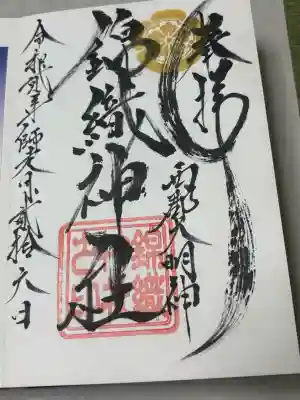 奉拝
明神
錦織神社
錦織神社
令和弐年師走弐拾六日